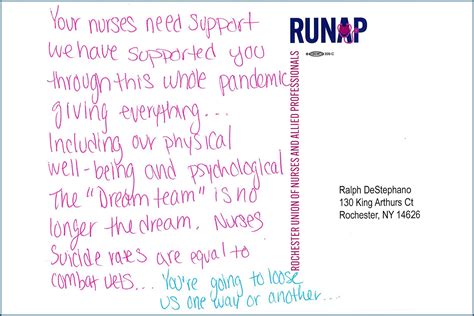 Your nurses need support
We have supported you
through this whole pandemic
giving everything...
Including our physical
well-being and psychological
The "Dream team" is no
longer the dream. Nurses
Suicide rates are equal to
combat vets... You're going to loose
us one way or another...
RUNAP
ROCHESTER UNION OF NURSES AND ALLIED PROFESSIONALS
Ralph DeStephano
130 King Arthurs Ct
Rochester, NY 14626